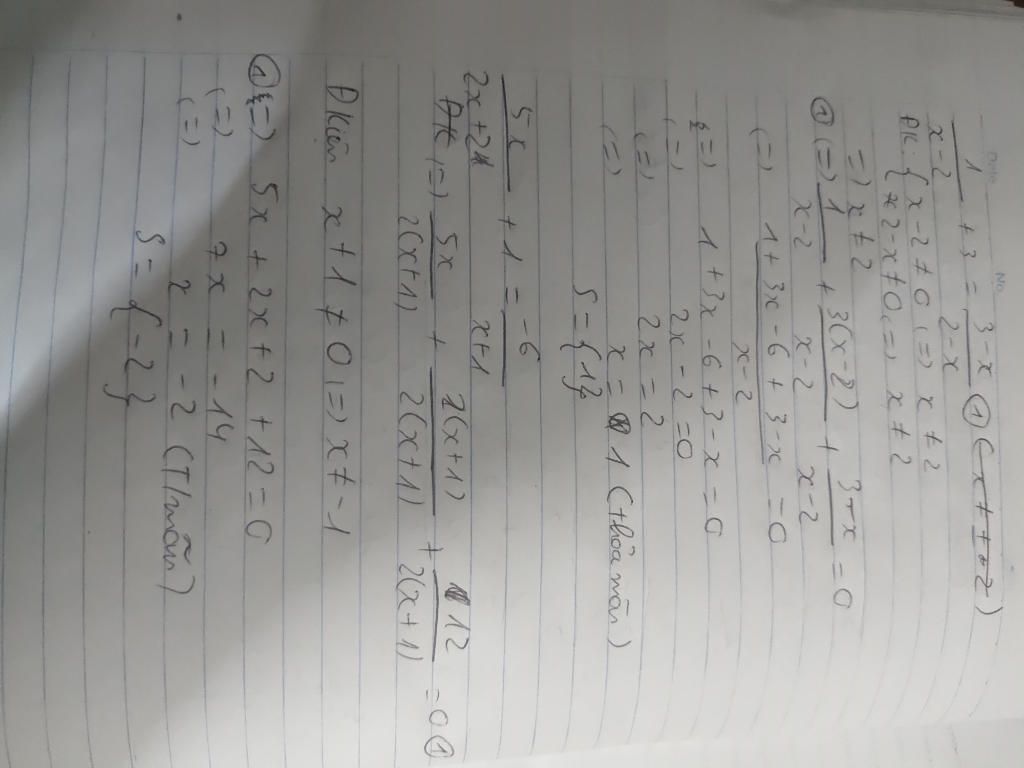 No.
1/(x-2) + 3 = (3-x)/(2-x) ① (x ≠ ± 2)
ĐK: { x-2 ≠ 0 (=) x ≠ 2
2-x ≠ 0 (=) x ≠ 2
=) x ≠ 2
① (=) 1/(x-2) + 3(x-2)/(x-2) + (3-x)/(x-2) = 0
(=) (1 + 3x - 6 + 3-x)/(x-2) = 0
(=) 1 + 3x - 6 + 3 - x = 0
(=) 2x - 2 = 0
(=) 2x = 2
(=) x = 1 (thõa mãn)
S = {1}
5x/(2x+2) + 1 = -6/(x+1)
(=) 5x/2(x+1) + 2(x+1)/2(x+1) + 12/2(x+1) = 0 ①
Đkiện x + 1 ≠ 0 (=) x ≠ -1
① (=) 5x + 2x + 2 + 12 = 0
(=) 7x = -14
(=) x = -2 (T/mãn)
S = {-2}